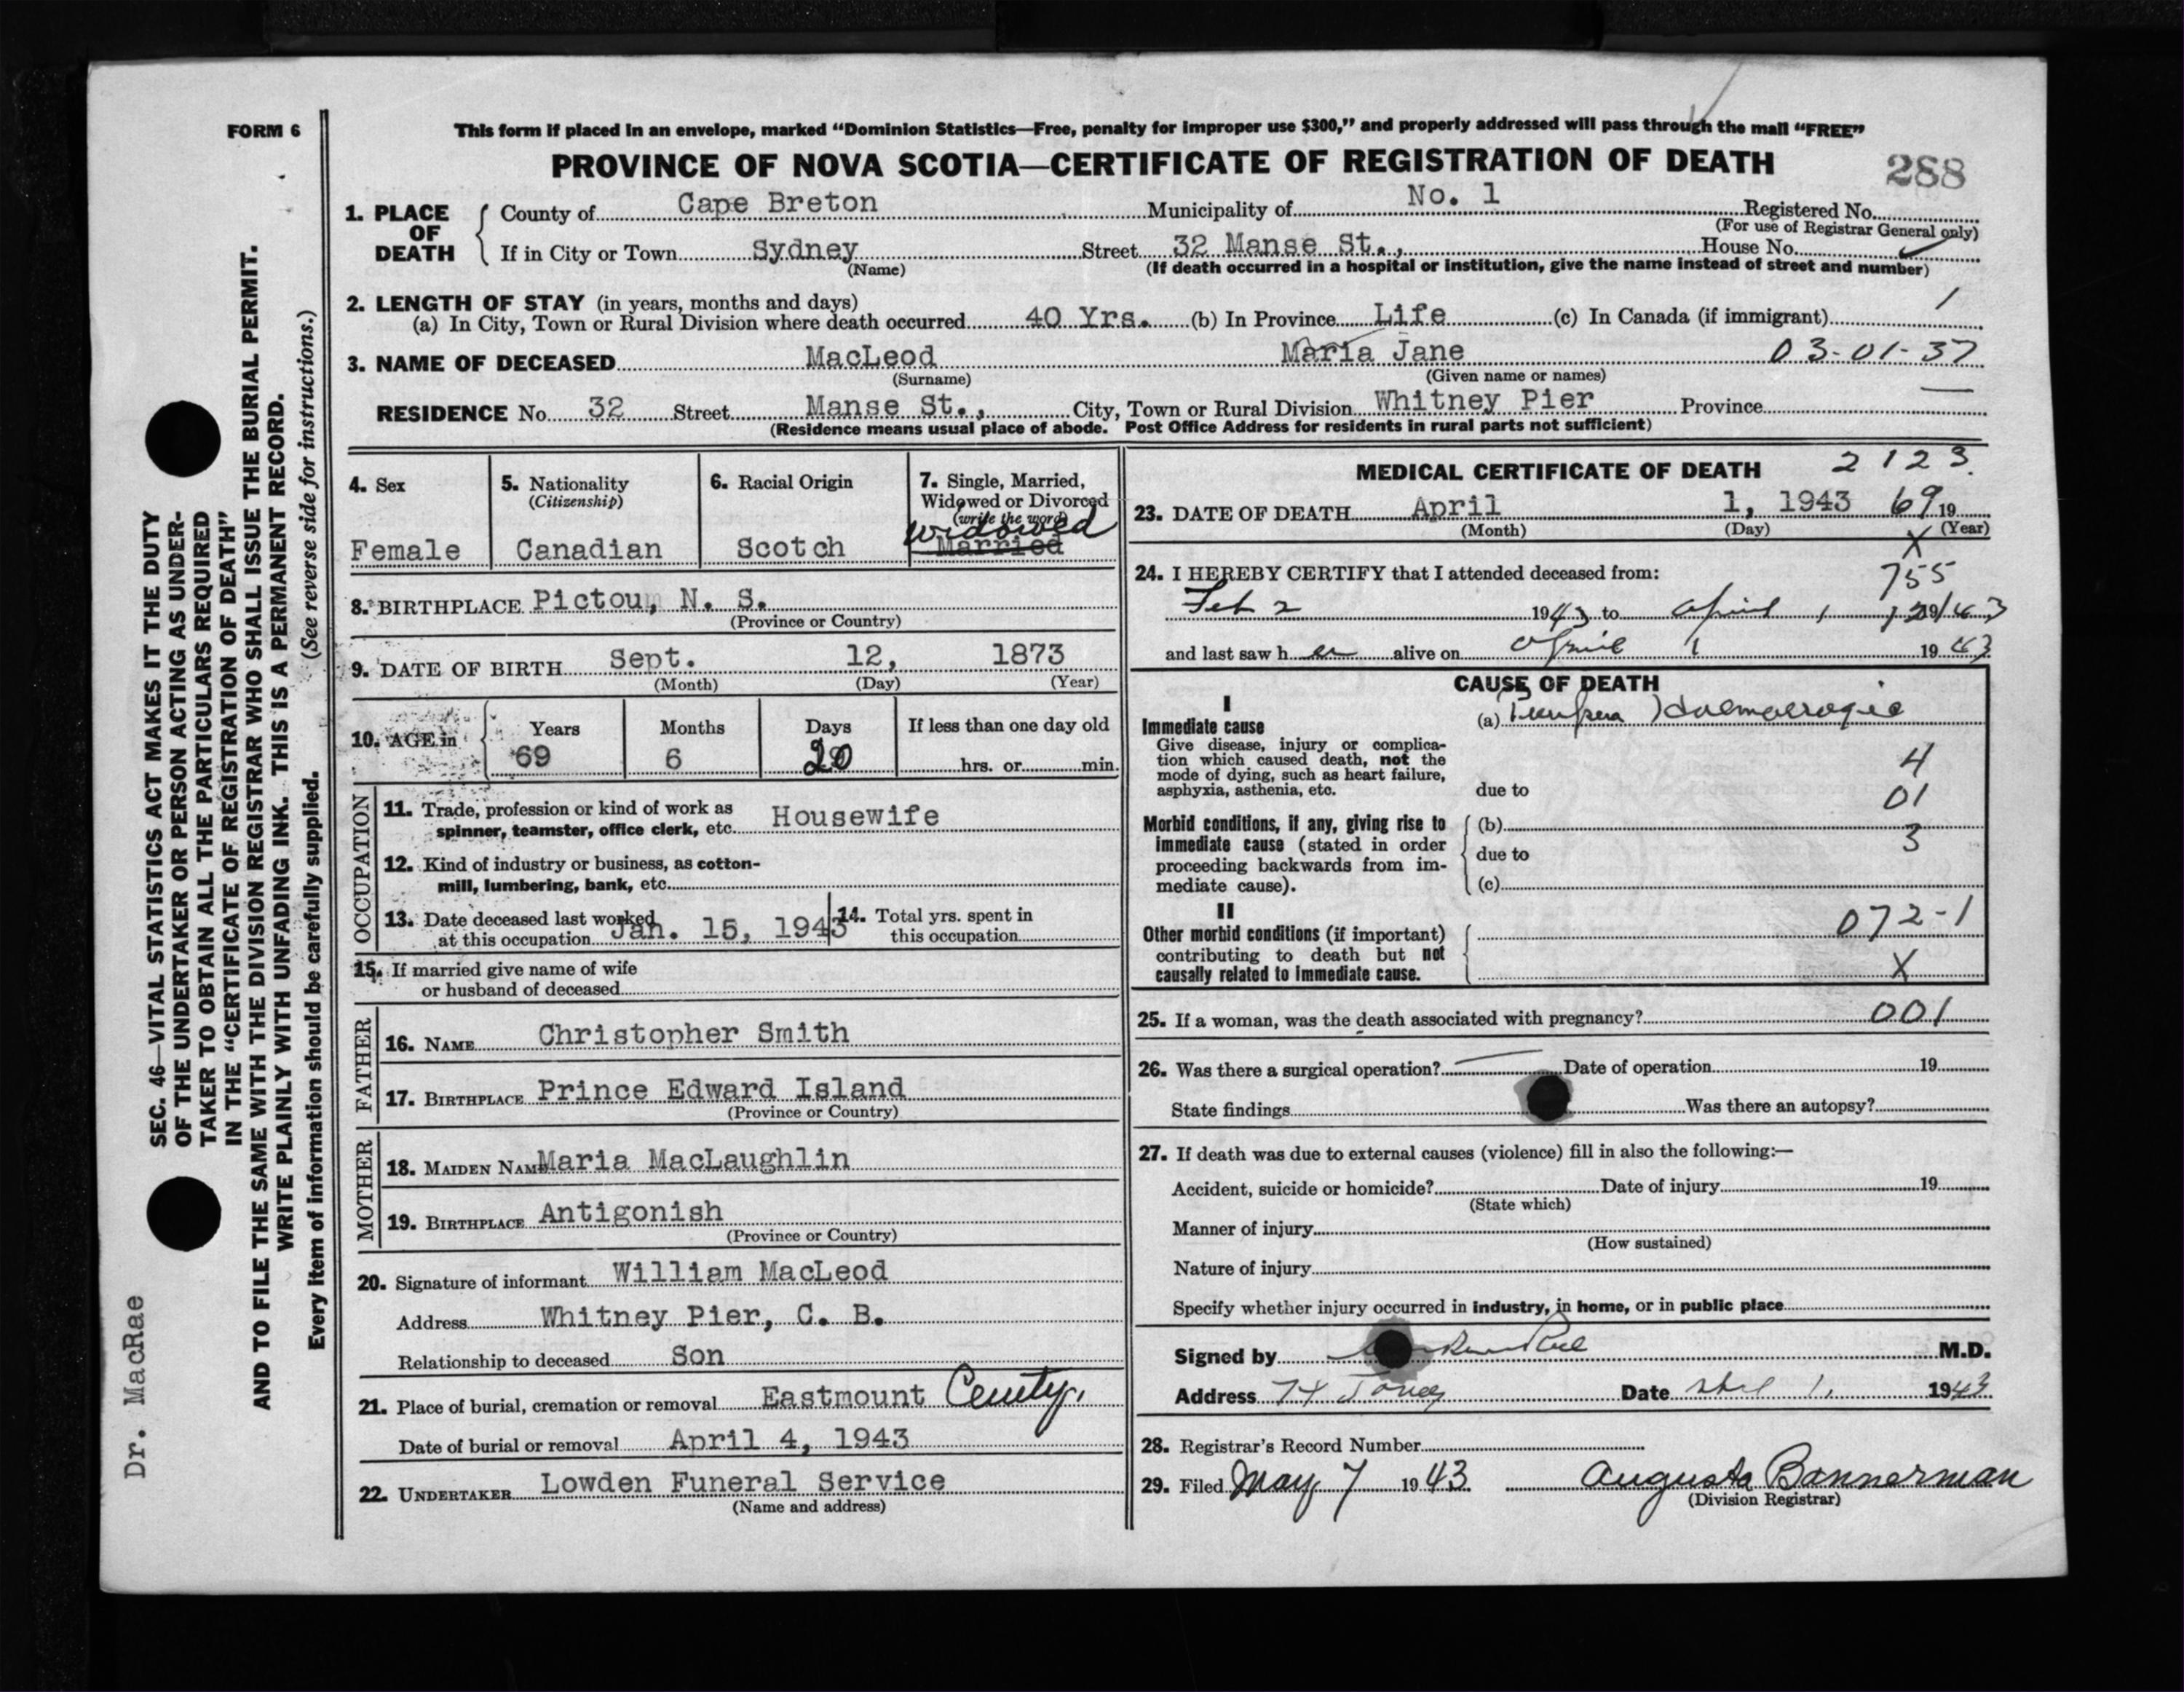 FORM 6
This form if placed in an envelope, marked “Dominion Statistics—Free, penalty for improper use $300,” and properly addressed will pass through the mail “FREE”
PROVINCE OF NOVA SCOTIA—CERTIFICATE OF REGISTRATION OF DEATH
288
1. PLACE OF DEATH
County of Cape Breton Municipality of No. 1 Registered No.
(For use of Registrar General only)
If in City or Town Sydney Street 32 Manse St., House No.
(Name) (If death occurred in a hospital or institution, give the name instead of street and number)
2. LENGTH OF STAY (in years, months and days)
(a) In City, Town or Rural Division where death occurred 40 Yrs. (b) In Province Life (c) In Canada (if immigrant)
3. NAME OF DECEASED MacLeod Maria Jane 03-01-37
(Surname) (Given name or names)
RESIDENCE No. 32 Street Manse St., City, Town or Rural Division Whitney Pier Province
(Residence means usual place of abode. Post Office Address for residents in rural parts not sufficient)
4. Sex
Female
5. Nationality
(Citizenship)
Canadian
6. Racial Origin
Scotch
7. Single, Married,
Widowed or Divorced
(write the word)
widowed
Married
8. BIRTHPLACE Pictou, N. S.
(Province or Country)
9. DATE OF BIRTH Sept. 12, 1873
(Month) (Day) (Year)
10. AGE in
Years Months Days If less than one day old
69 6 20 hrs. or min.
OCCUPATION
11. Trade, profession or kind of work as
spinner, teamster, office clerk, etc. Housewife
12. Kind of industry or business, as cotton-
mill, lumbering, bank, etc.
13. Date deceased last worked
at this occupation Jan. 15, 1943
14. Total yrs. spent in
this occupation
15. If married give name of wife
or husband of deceased
FATHER
16. NAME Christopher Smith
17. BIRTHPLACE Prince Edward Island
(Province or Country)
MOTHER
18. MAIDEN NAME Maria MacLaughlin
19. BIRTHPLACE Antigonish
(Province or Country)
20. Signature of informant William MacLeod
Address Whitney Pier, C. B.
Relationship to deceased Son
21. Place of burial, cremation or removal Eastmount
Date of burial or removal April 4, 1943
22. UNDERTAKER Lowden Funeral Service
(Name and address)
MEDICAL CERTIFICATE OF DEATH 2123
23. DATE OF DEATH April 1, 1943 69 19
(Month) (Day) (Year)
X
24. I HEREBY CERTIFY that I attended deceased from:
755
Feb 2 1943 to April 1
and last saw her alive on April 1 1943
CAUSE OF DEATH
I
Immediate cause
Give disease, injury or complica-
tion which caused death, not the
mode of dying, such as heart failure,
asphyxia, asthenia, etc.
(a)
4
due to
01
Morbid conditions, if any, giving rise to
immediate cause (stated in order
proceeding backwards from im-
mediate cause).
(b)
3
due to
(c)
II
Other morbid conditions (if important)
contributing to death but not
causally related to immediate cause.
072-1
X
25. If a woman, was the death associated with pregnancy? 001
26. Was there a surgical operation? Date of operation 19
State findings Was there an autopsy?
27. If death was due to external causes (violence) fill in also the following:—
Accident, suicide or homicide? Date of injury 19
(State which)
Manner of injury
(How sustained)
Nature of injury
Specify whether injury occurred in industry, in home, or in public place
Signed by M.D.
Address Date 1, 1943
28. Registrar's Record Number
29. Filed May 7 1943. Augusta Bannerman
(Division Registrar)
SEC. 46—VITAL STATISTICS ACT MAKES IT THE DUTY
OF THE UNDERTAKER OR PERSON ACTING AS UNDER-
TAKER TO OBTAIN ALL THE PARTICULARS REQUIRED
IN THE “CERTIFICATE OF REGISTRATION OF DEATH”
AND TO FILE THE SAME WITH THE DIVISION REGISTRAR WHO SHALL ISSUE THE BURIAL PERMIT.
WRITE PLAINLY WITH UNFADING INK. THIS IS A PERMANENT RECORD.
Every item of information should be carefully supplied. (See reverse side for instructions.)
Dr. MacRae